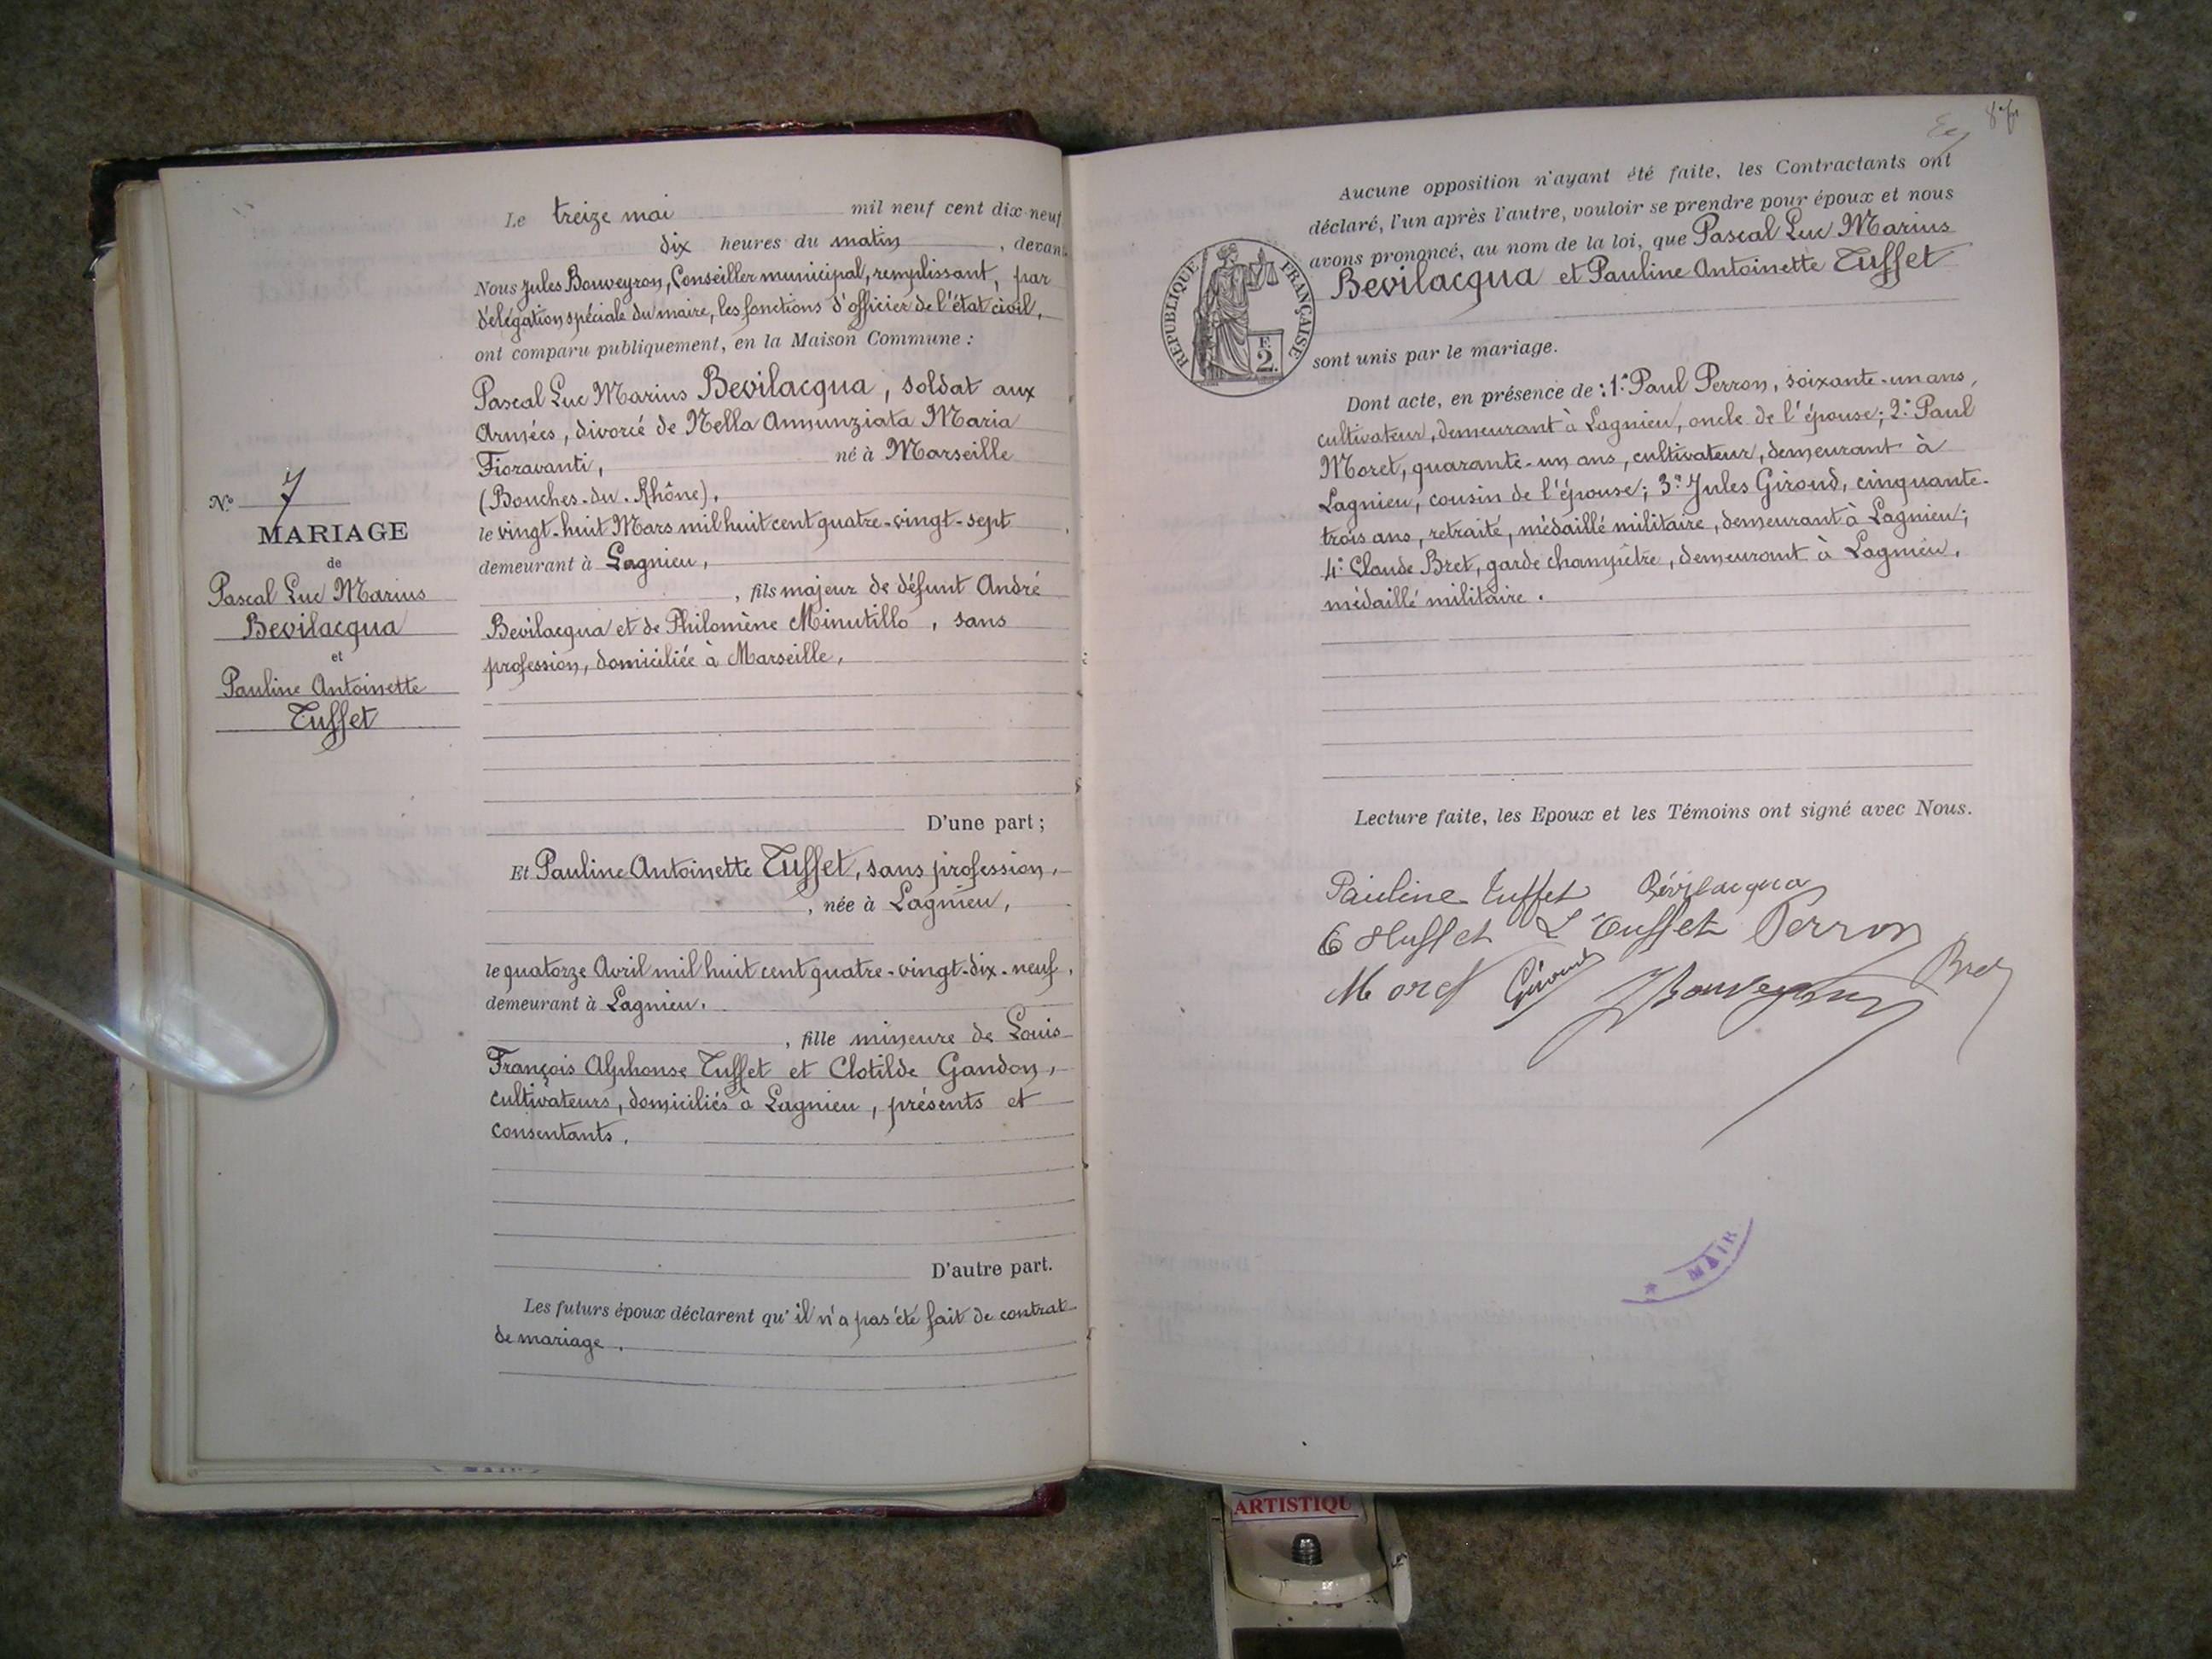 N° 7
MARIAGE
de
Pascal Luc Marius
Bevilacqua
et
Pauline Antoinette
Tuffet
Le treize mai mil neuf cent dix-neuf
dix heures du matin, devant
Nous Jules Bouveyron, Conseiller municipal, remplissant, par
délégation spéciale du maire, les fonctions d'officier de l'état civil,
ont comparu publiquement, en la Maison Commune :
Pascal Luc Marius Bevilacqua, soldat aux
Armées, divorcé de Nella Annunziata Maria
Fioravanti, né à Marseille
(Bouches-du-Rhône),
le vingt-huit Mars mil huit cent quatre-vingt-sept
demeurant à Lagnieu,
, fils majeur de défunt André
Bevilacqua et de Philomène Minutillo, sans
profession, domiciliée à Marseille,
D'une part ;
Et Pauline Antoinette Tuffet, sans profession,
, née à Lagnieu,
le quatorze Avril mil huit cent quatre-vingt-dix-neuf,
demeurant à Lagnieu.
, fille mineure de Louis
François Alphonse Tuffet et Clotilde Gandon,
cultivateurs, domiciliés à Lagnieu, présents et
consentants,
D'autre part.
Les futurs époux déclarent qu'il n'a pas été fait de contrat
de mariage.
Aucune opposition n'ayant été faite, les Contractants ont
déclaré, l'un après l'autre, vouloir se prendre pour époux et nous
avons prononcé, au nom de la loi, que Pascal Luc Marius
Bevilacqua et Pauline Antoinette Tuffet
RÉPUBLIQUE FRANÇAISE
F.
2.
sont unis par le mariage.
Dont acte, en présence de : 1° Paul Perron, soixante-un ans,
cultivateur, demeurant à Lagnieu, oncle de l'épouse; 2° Paul
Moret, quarante-un ans, cultivateur, demeurant à
Lagnieu, cousin de l'épouse; 3° Jules Giroud, cinquante-
trois ans, retraité, médaillé militaire, demeurant à Lagnieu;
4° Claude Bret, garde champêtre, demeurant à Lagnieu,
médaillé militaire.
Lecture faite, les Epoux et les Témoins ont signé avec Nous.
Pauline Tuffet Bévilacqua
Tuffet L Tuffet Perron
Moret Giroud JBouveyron Bret
MAIR
ARTISTIQU